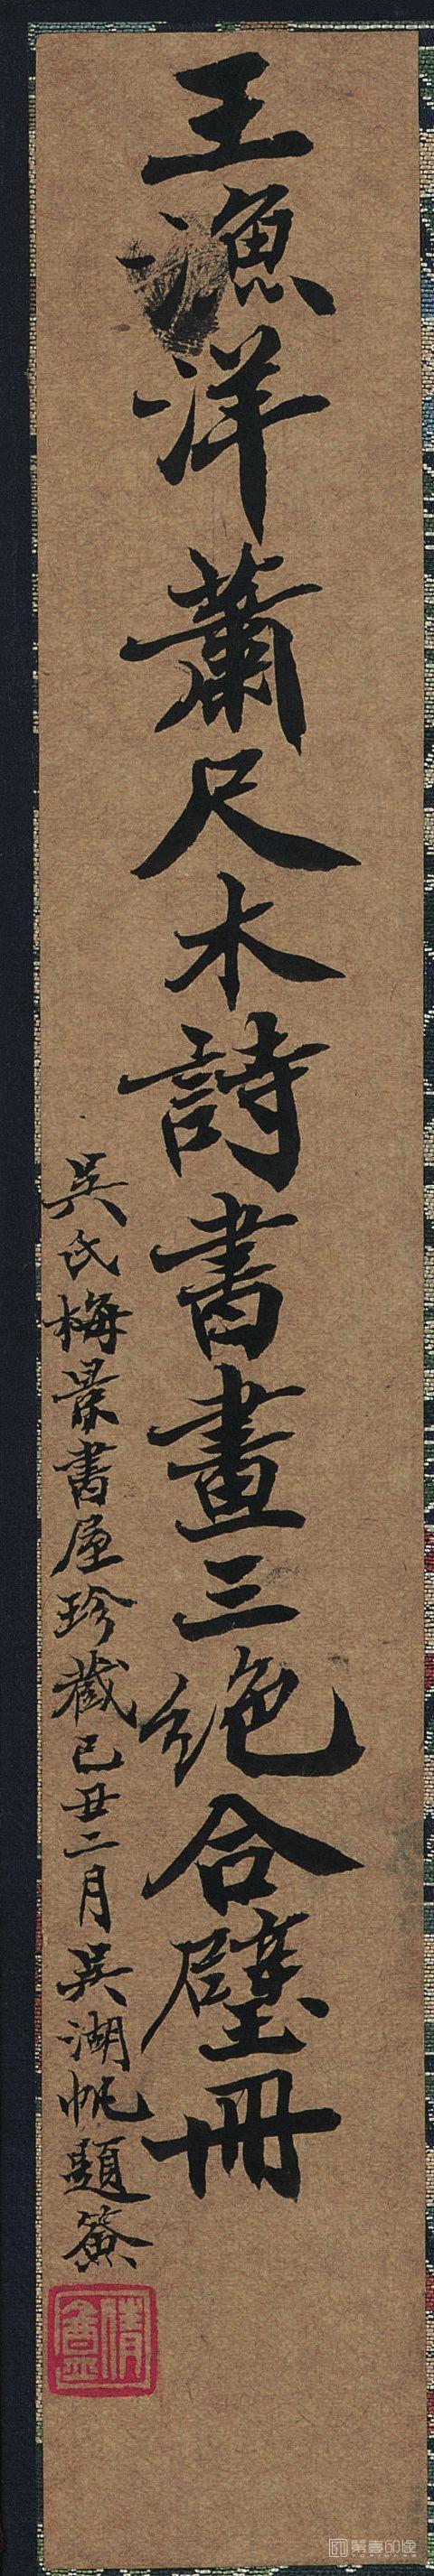 王漁洋蕭尺木詩書畫三絶合璧冊
吳氏梅景書屋珍藏己丑二月吳湖帆題簽
倩盦